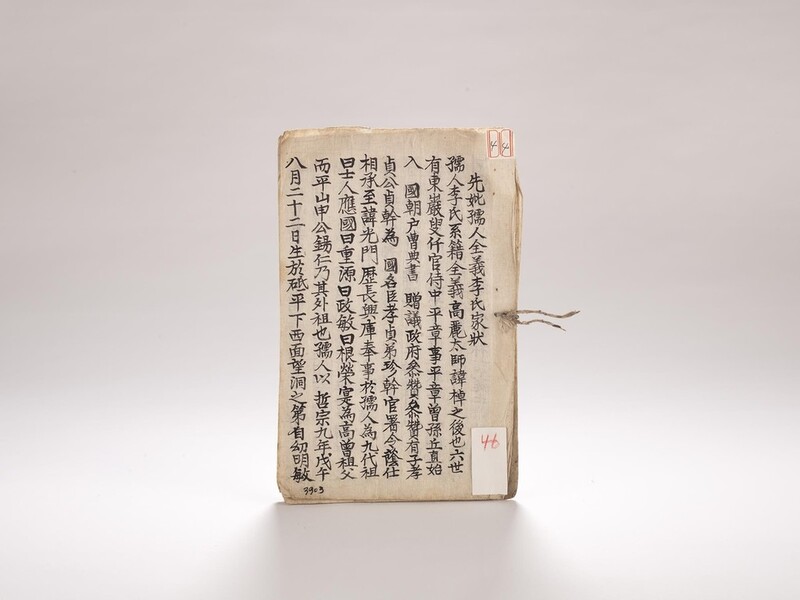 先妣孺人全義李氏家狀
孺人李氏系籍全義高麗太師諱棹之後也六世
有東巖叟仟官侍中平章事平章曾孫丘直始
入 國朝户曹典書 贈議政府叅贊叅贊有子孝
貞公貞幹為 國名臣孝貞弟珍幹官署令蔭仕
相承至諱光門歷長興庫奉事於孺人為九代祖
曰士人應國曰重源曰政敏曰根榮寔為高曾祖父
而平山申公錫仁乃其外祖也孺人以 哲宗九年戊午
八月二十二日生於砥平下西面望洞之第自幼明敏
3903
44
46